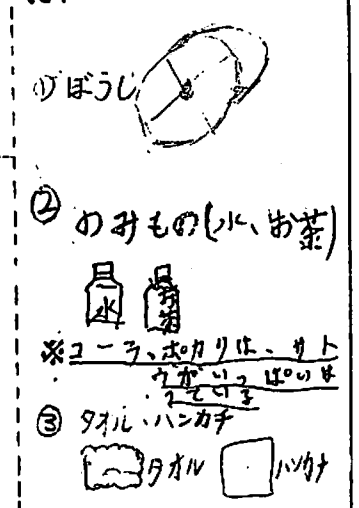 ① ぼうし
② のみもの(水、お茶)
水 お茶
※コーラ、ポカリは、サト
ウがいっぱいは
っている
③ タオル・ハンカチ
タオル ハンカチ